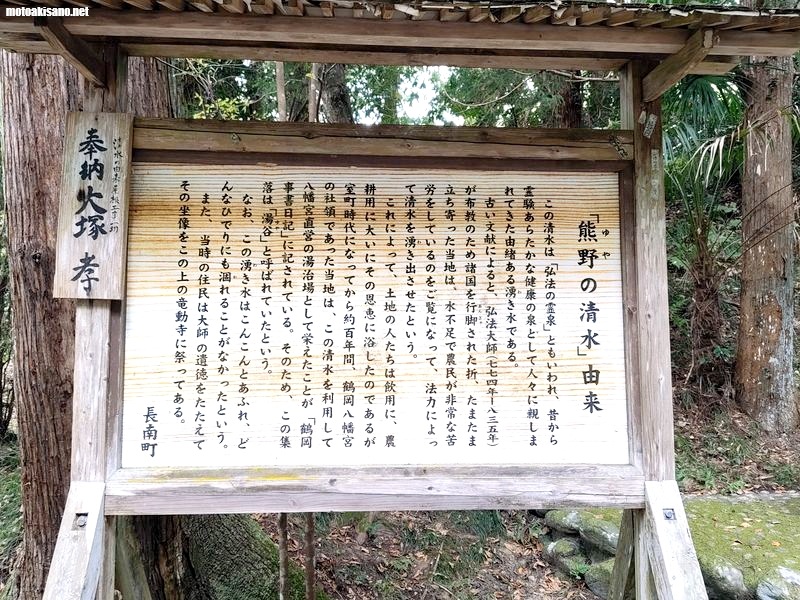 motoakisano.net
「熊野の清水」由来
ゆや
この清水は「弘法の霊泉」ともいわれ、昔から
霊験あらたかな健康の泉として人々に親しま
れてきた由緒ある湧き水である。
古い文献によると、弘法大師(七七四年ー八三五年)
が布教のため諸国を行脚された折、たまたま
立ち寄った当地は、水不足で農民が非常な苦
労をしているのをご覧になって、法力によっ
て清水を湧き出させたという。
これによって、土地の人たちは飲用に、農
耕用に大いにその恩恵に浴したのであるが
室町時代になってから約百年間、鶴岡八幡宮
の社領であった当地は、この清水を利用して
八幡宮直営の湯治場として栄えたことが「鶴岡
事書日記」に記されている。そのため、この集
落は「湯谷」と呼ばれていたという。
なお、この湧き水はこんこんとあふれ、ど
んなひでりにも涸れることがなかったという。
また、当時の住民は大師の遺徳をたたえて
その坐像をこの上の竜動寺に祭ってある。
長南町
清水の由来看板工事一所
奉納 火塚 孝